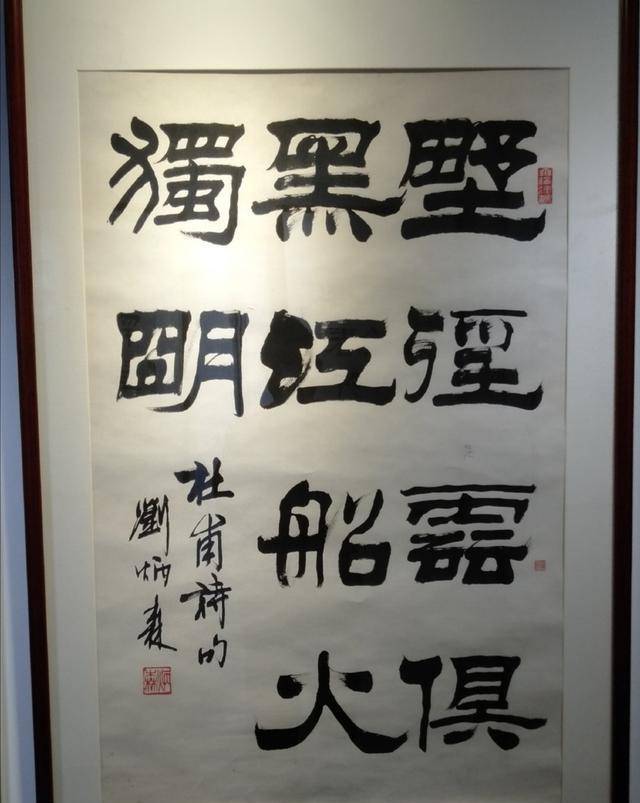 野徑雲俱
黑江船火
獨明
杜甫詩句
劉炳森
炳森